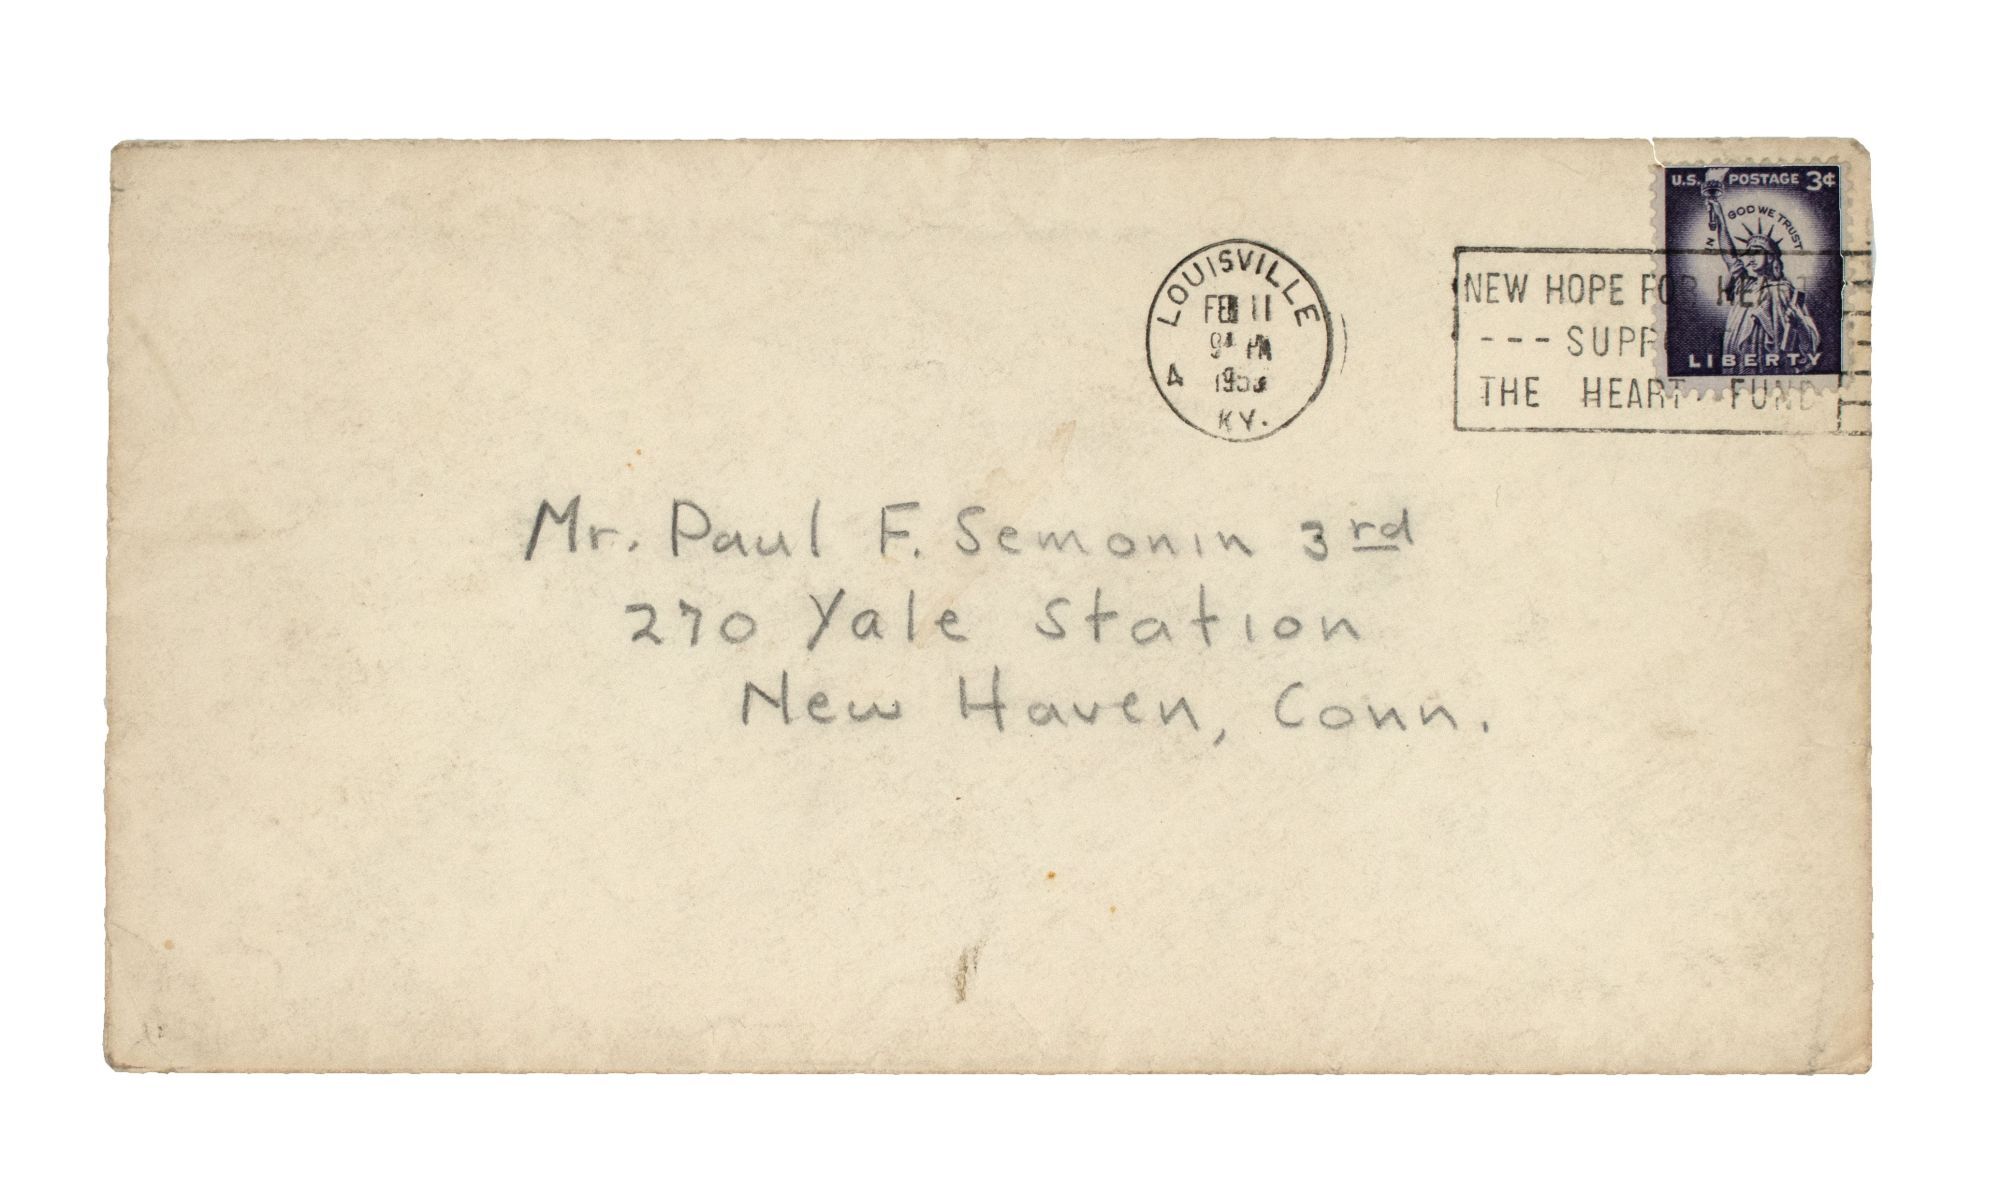 U.S. POSTAGE 3¢
IN GOD WE TRUST
LIBERTY
LOUISVILLE
FEB 11
PM
KY.
4
NEW HOPE FOR HEART
--- SUPP
THE HEART FUND
Mr. Paul F. Semonin 3rd
270 Yale Station
New Haven, Conn.